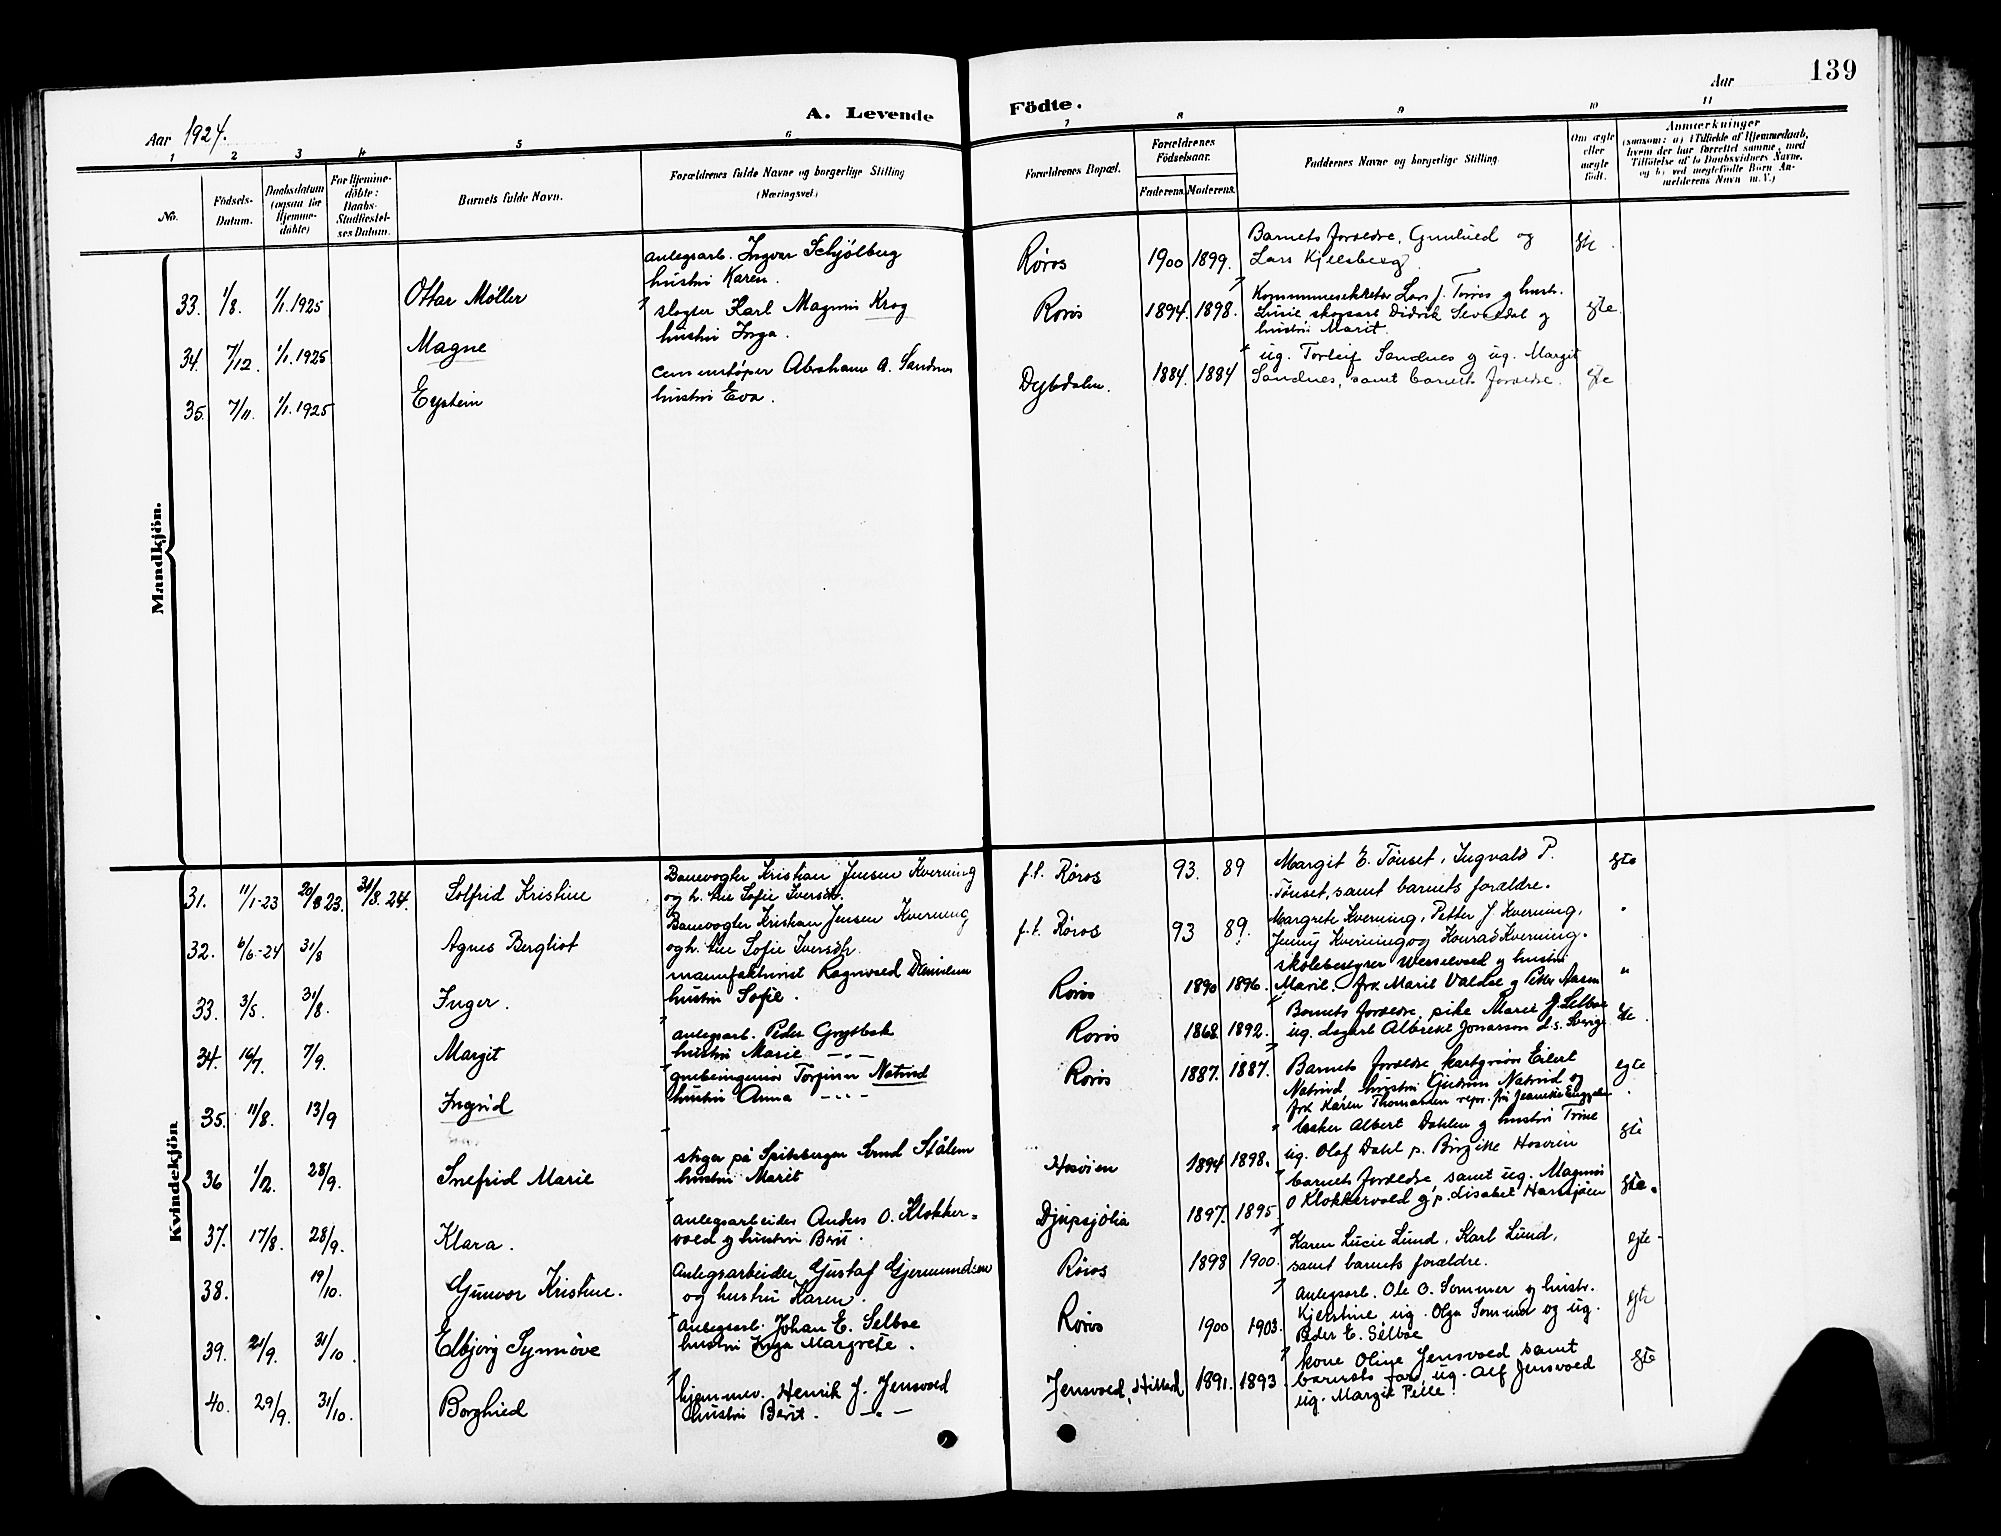 139
Aar 1924.
A. Levende
Födte.
Aar
1 2 3 4 5 6 7 8 9 10 11
No.
Födsels-
Datum.
Daabsdatum
(ogsaa for
Hjemme-
döbte)
For Hjemme-
döbte:
Daabs-
Stadfæstel-
ses Datum.
Barnets fulde Navn.
Forældrenes fulde Navne og borgerlige Stilling
(Næringsvei.)
Forældrenes Bopæl.
Forældrenes
Födselsaar.
Faderens. Moderens.
Faddernes Navne og borgerlige Stilling.
Om ægte
eller
uægte
født.
Anmærkninger
(saasom: a) i Tilfælde af Hjemmedaab,
hvem der har forrettet samme, med
Tilföielse af to Daabsvidners Navne,
og b) ved uægtefödte Börn An-
melderens Navn m. V.)
Mandkjön.
33. 1/8. 1/1.1925 Ottar Møller
anlegsarb. Ingvar Schjølberg
hustru Karen.
Røros 1900 1899.
Barnets foreldre, Gunhild og
Lars Kjelsberg.
34. 7/12. 1/1.1925 Magne
slagter Karl Magnus Krog
hustru Inga.
Røros 1894. 1898.
Kommunesekretær Lars J. Torres g hustr.
hustru Marit.
egte.
35. 7/11. 1/1.1925 Eystein
cementstøper Abraham A. Sandnes
hustru Eva.
Dybdalen. 1884. 1884
ug. Torleif Sandnes g ug. Margit
Sandnes, samt barnets foreldre.
egte
Kvindekjön
31. 11/1-23 20/8 23. 31/8. 24. Solfrid Kristine
Banevogter Kristian Jensen Kverning
og h. Sofie Iversdtr.
f.t. Røros 93. 89
Margit E. Tønset, Ingvald P.
Tønset, samt barnets forældre.
egte
32. 6/6-24 31/8 Agnes Bergliot
Banevogter Kristian Jensen Kverning
og h. Sofie Iversdtr.
f.t. Røros 93 89.
Margrete Kverning, Petter J. Kverning,
Jenny Kverning og Konrad Kverning.
"
33. 3/5. 31/8. Inger.
manufakturist Ragnvald Danielsen
hustru Sofie.
Røros 1890 1896.
skolebestyrer Wesselvold g hustru
Marie. frk Marie Valdsø g Peter Aasen
"
34. 16/7. 7/9. Margit
anlegsarb. Peder Grytbak
hustru Marie —"—
Røros 1868 1892.
Barnets foreldre, pike Marie J. Selboe
ug. dagarb Albrekt Jonasson d.s. Sverige
35. 11/8. 13/9 Ingrid
grubeingeniør Torfinn Natrud
hustru Anna —"—
Røros 1887. 1887.
Barnets foreldre
Natrud hustru Gudrun Natrud og
frk Karen Thomassen
egte
36 1/2. 28/9. Snefrid Marie
stiger på Spitsbergen
hustru Marit
1894 1898.
baker Albert Dahlen g hustru Trine
ug. Olaf Dahl p. Birgitte
egte
37. 17/8. 28/9. Klara.
Anlegsarbeider Anders O. Klokker-
vold g hustru Berit.
Djupsjølia 1897. 1895
barnets foreldre samt ug. Magnus
O Klokkervold g p. Lisabet Harsjøen
egte.
38. 19/10. Gunvor Kristine.
Anlegsarbeider Gustaf Gjermundsen
og hustru Karen.
Røros 1898 1900.
Karen Lucie Lund, Karl Lund,
samt barnets forældre.
egte
39. 21/9. 31/10. Elbjørg Synnøve
Anlegsarb. Johan E. Selboe
hustru Inga Margrete.
Røros 1900 1903.
Anlegsarb. Ole O. Sommer g hustr.
Kjerstine, ug. Olga Sommer og ug.
Peder E. Selboe
40. 29/9. 31/10. Borghild
hjemmev. Henrik J. Jensvold
hustru Berit. —"—
Jensvold, Hitterd 1891. 1893
kone Oline Jensvold samt
barnets far, ug. Alf Jensvold
ug. Margit Pelle
egte